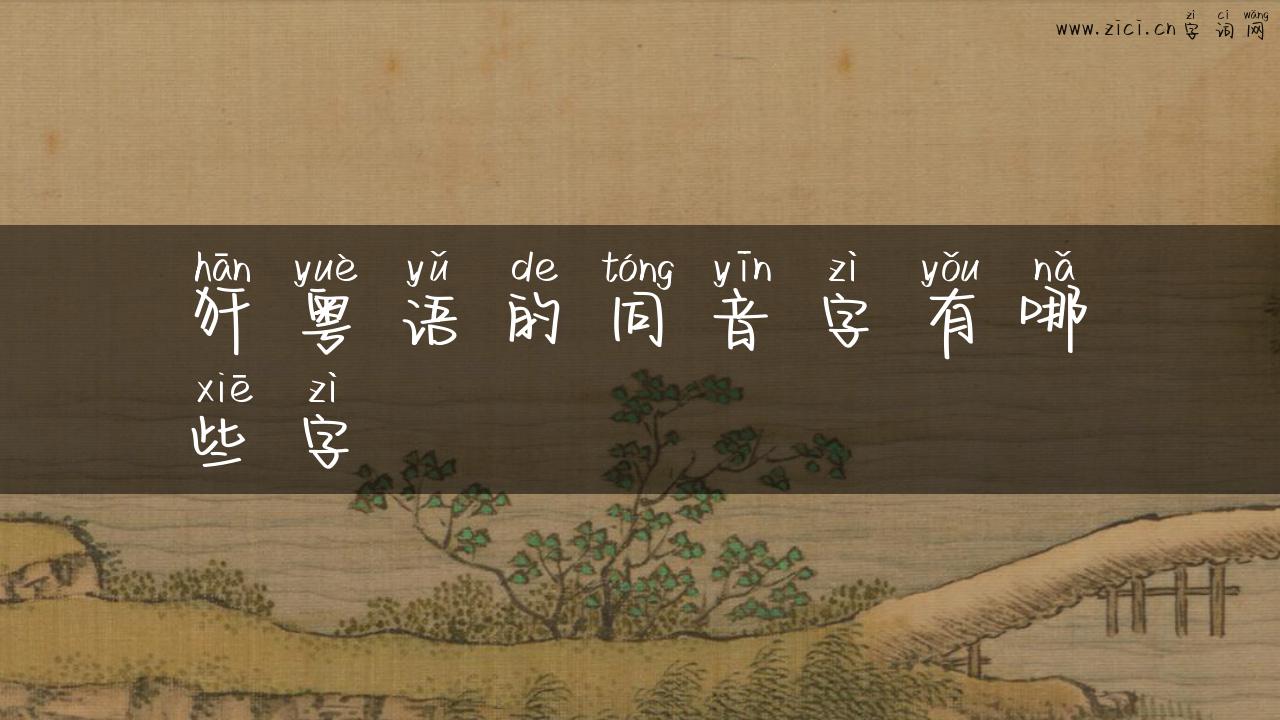 zì cí wǎng
www.zici.cn 字词网
hān yuè yǔ de tóng yīn zì yǒu nǎ
犴粤语的同音字有哪
xiē zì
些字